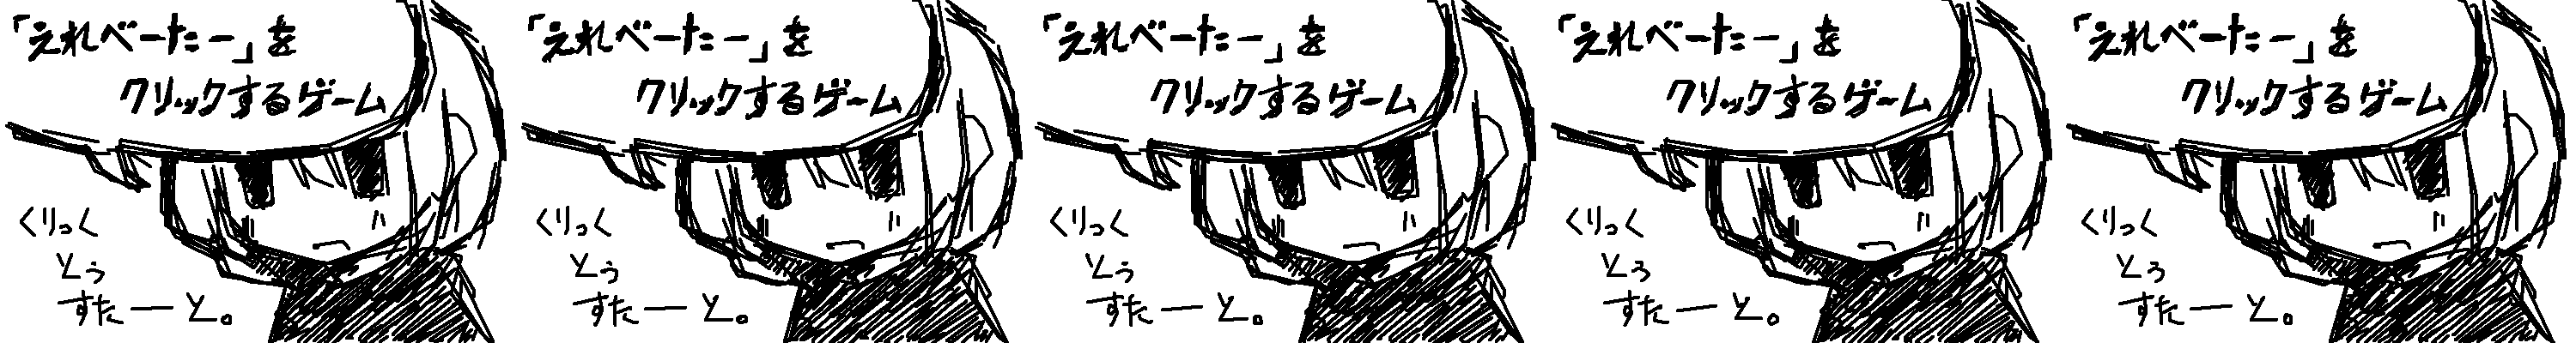 「えれべーたー」を
クリックするゲーム
くりっく
とぅ
すたーと。
「えれべーたー」を
クリックするゲーム
くりっく
とぅ
すたーと。
「えれべーたー」を
クリックするゲーム
くりっく
とぅ
すたーと。
「えれべーたー」を
クリックするゲーム
くりっく
とぅ
すたーと。
「えれべーたー」を
クリックするゲーム
くりっく
とぅ
すたーと。